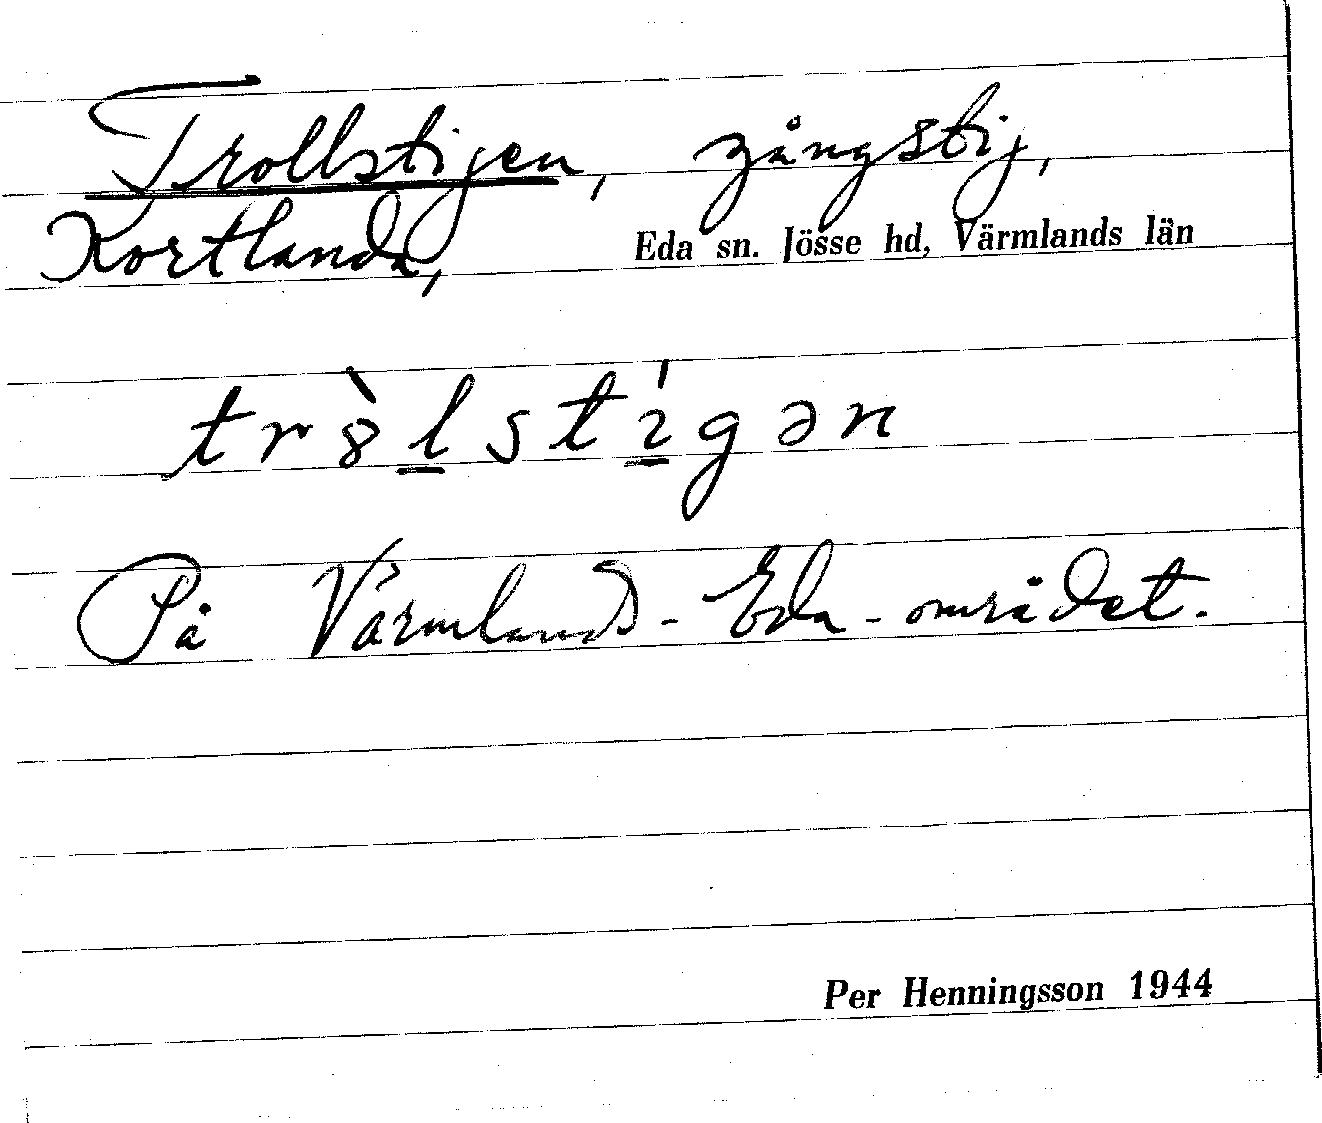 Trollstigen, gångstig,
Kortlanda, Eda sn. Jösse hd, Värmlands län
tr8̀l̲stí̲gən
På Värmlands-Eda-området.
Per Henningsson 1944